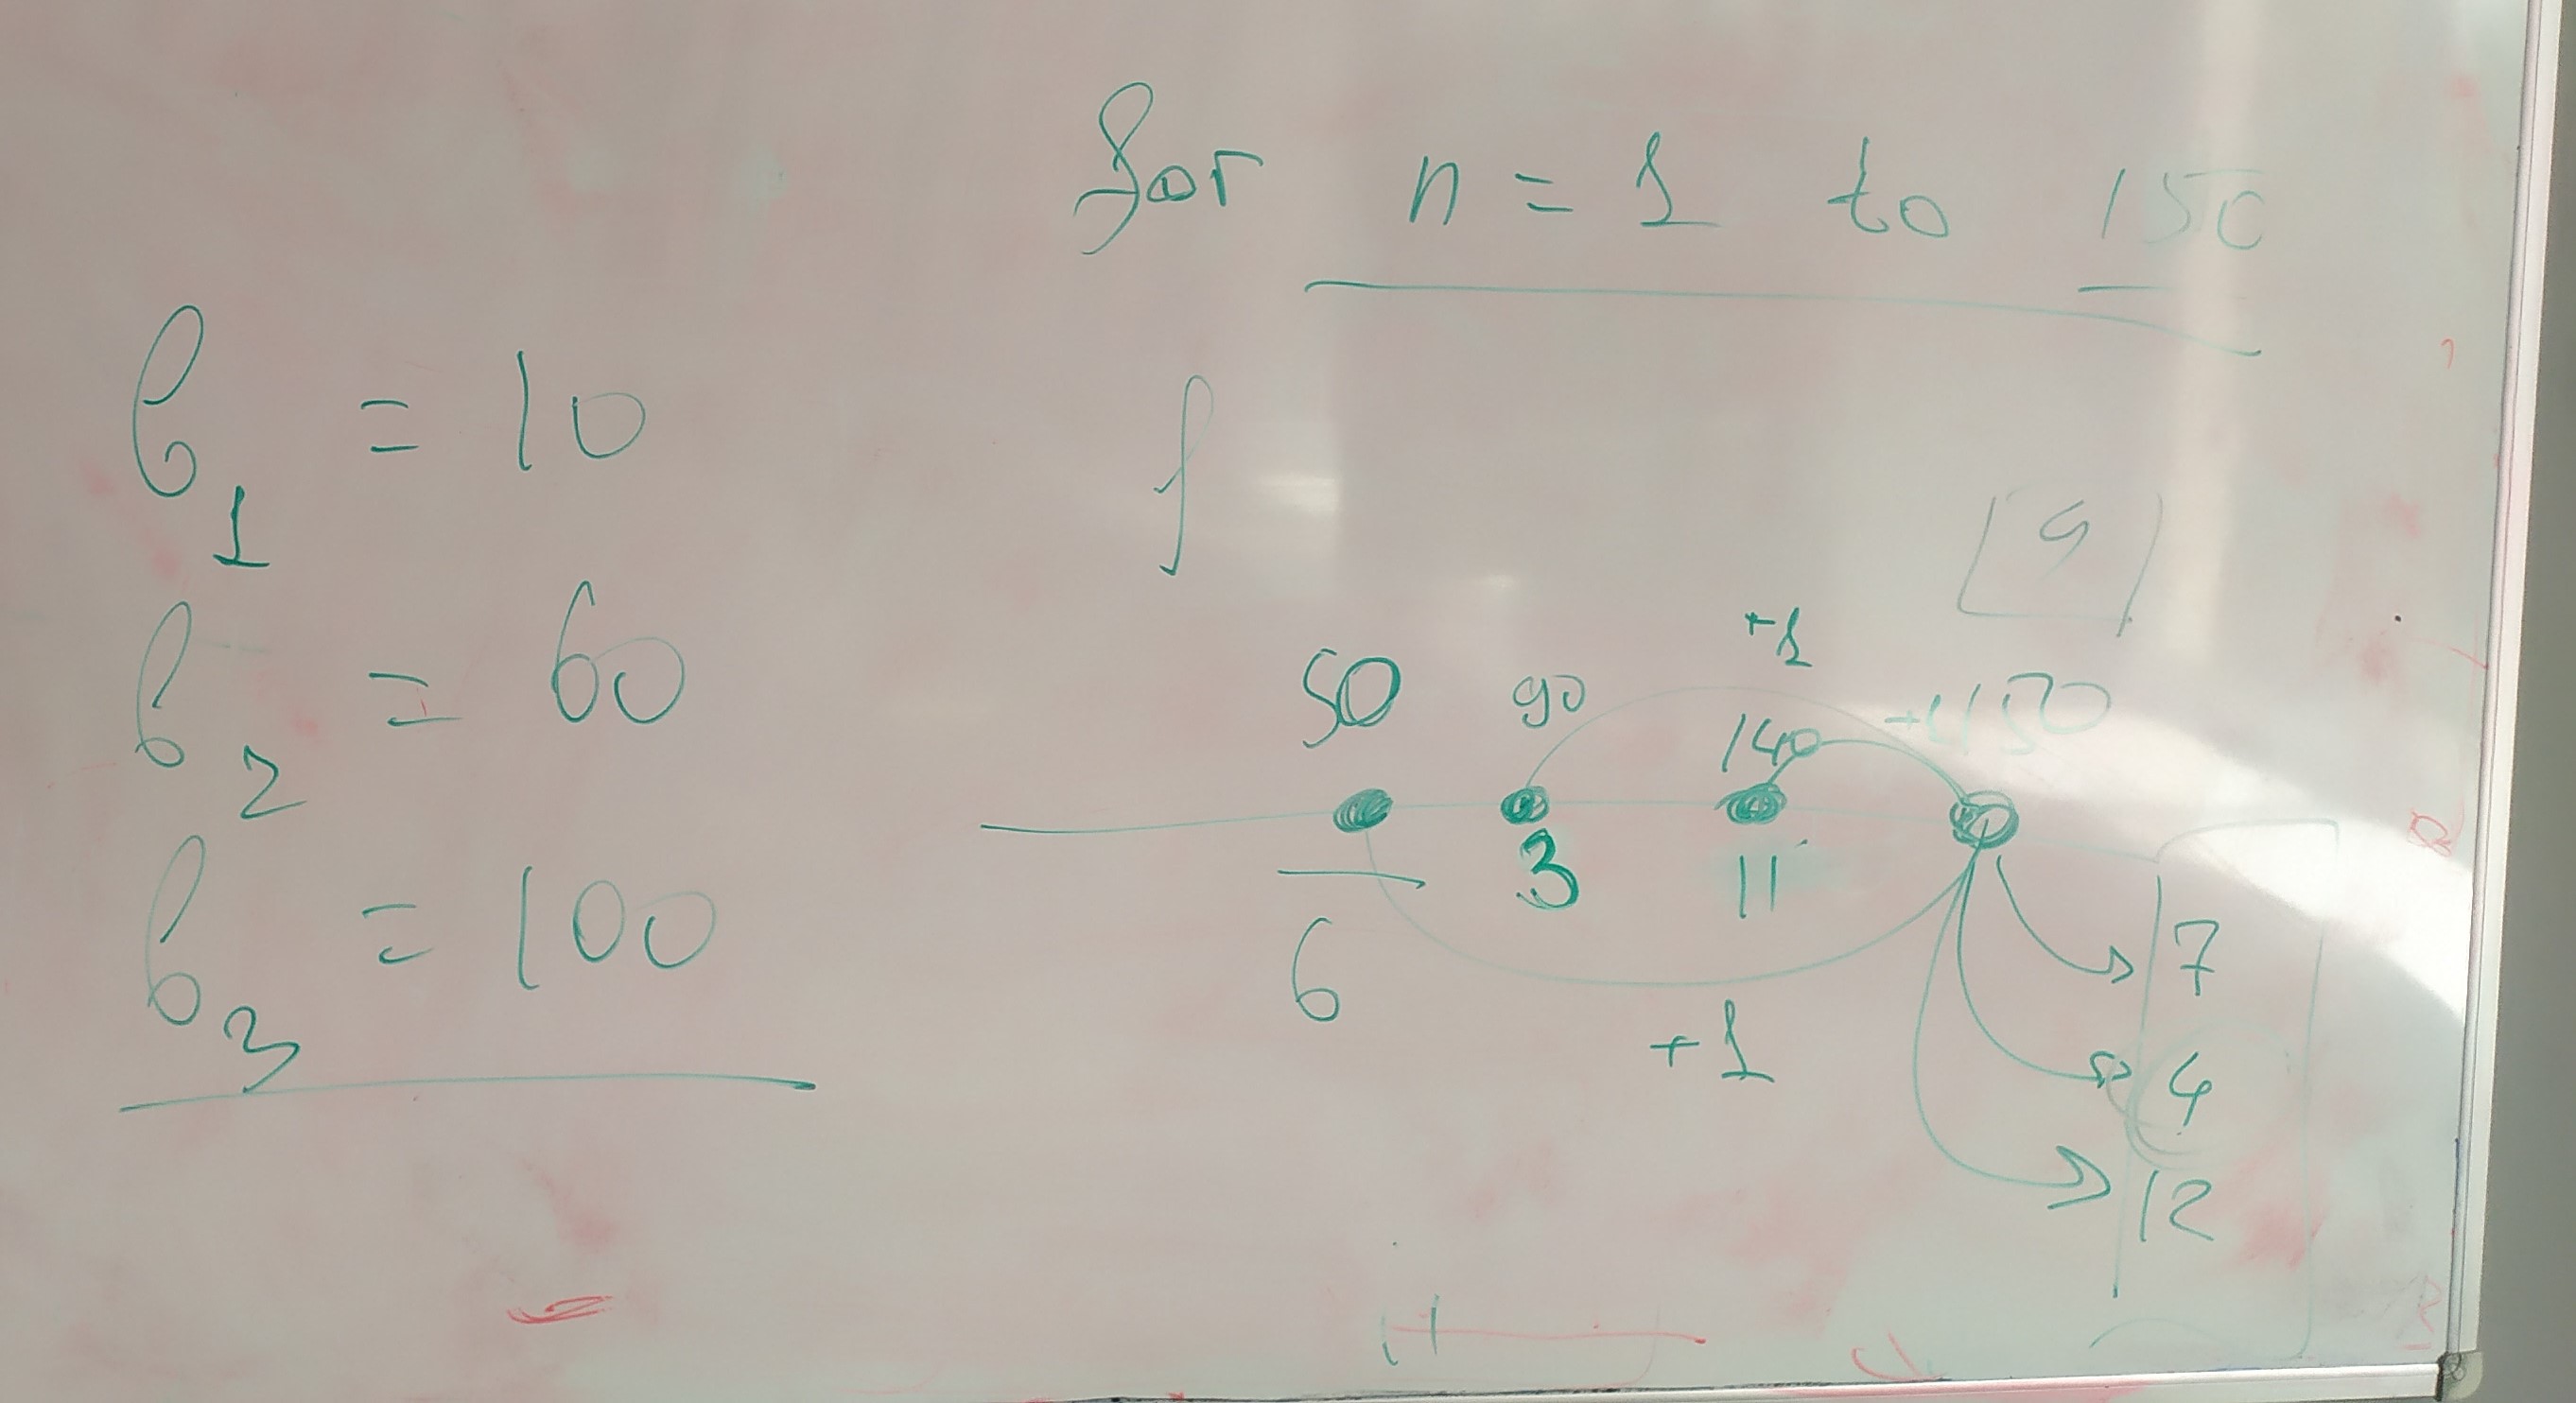 for n = 1 to 150
b1 = 10
f
b2 = 60
b3 = 100
+1
50 90 140 150
3 11
6
+1
7
4
12